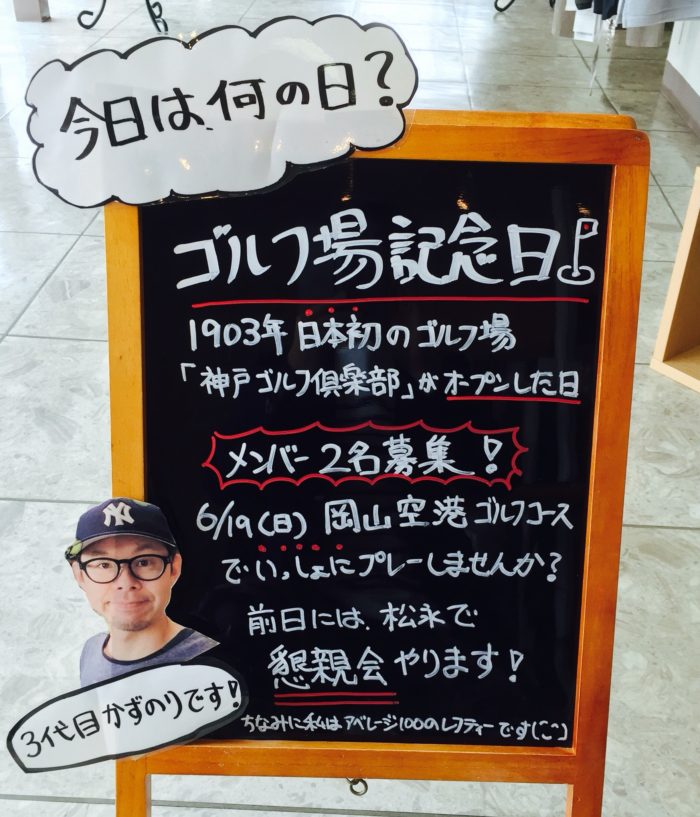 今日は、何の日?
ゴルフ場記念日
1903年 日本初のゴルフ場
「神戸ゴルフ倶楽部」がオープンした日
メンバー2名募集!
6/19(日) 岡山空港ゴルフコース
でいっしょにプレーしませんか?
前日には、松永で
懇親会やります!
ちなみに私はアベレージ100のレフティーです(^^)
NY
3代目かずのりです!